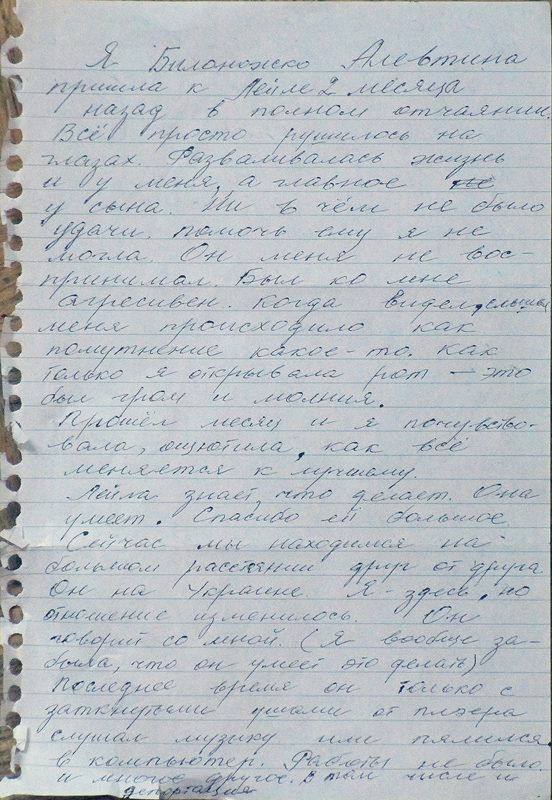 Я Билоножко Алевтина
пришла к Лейле 2 месяца
назад в полном отчаянии.
Всё просто рушилось на
глазах. Разваливалась жизнь
и у меня, а главное
у сына. Ни в чём не было
удачи. помочь ему я не
могла. Он меня не вос-
принимал. Был ко мне
агресивен. Когда видел, слышал
меня происходило как
помутнение какое-то. Как
только я открывала рот – это
был гром и молния.
Прошёл месяц и я почувство-
вала, ощютила, как всё
меняется к лучшему.
Лейла знает, что делает. Она
умеет. Спасибо ей большое
Сейчас мы находимся на
большом расстоянии друг от друга
Он на Украине Я - здесь, но
отношение изменилось. Он
говорит со мной. (Я вообще за-
была, что он умеет это делать)
Последнее время он только с
заткнутыми ушами от плэера
слушал музыку или пялился
в компьютер. Работы не было
и многое другое. в том числе и
депортация